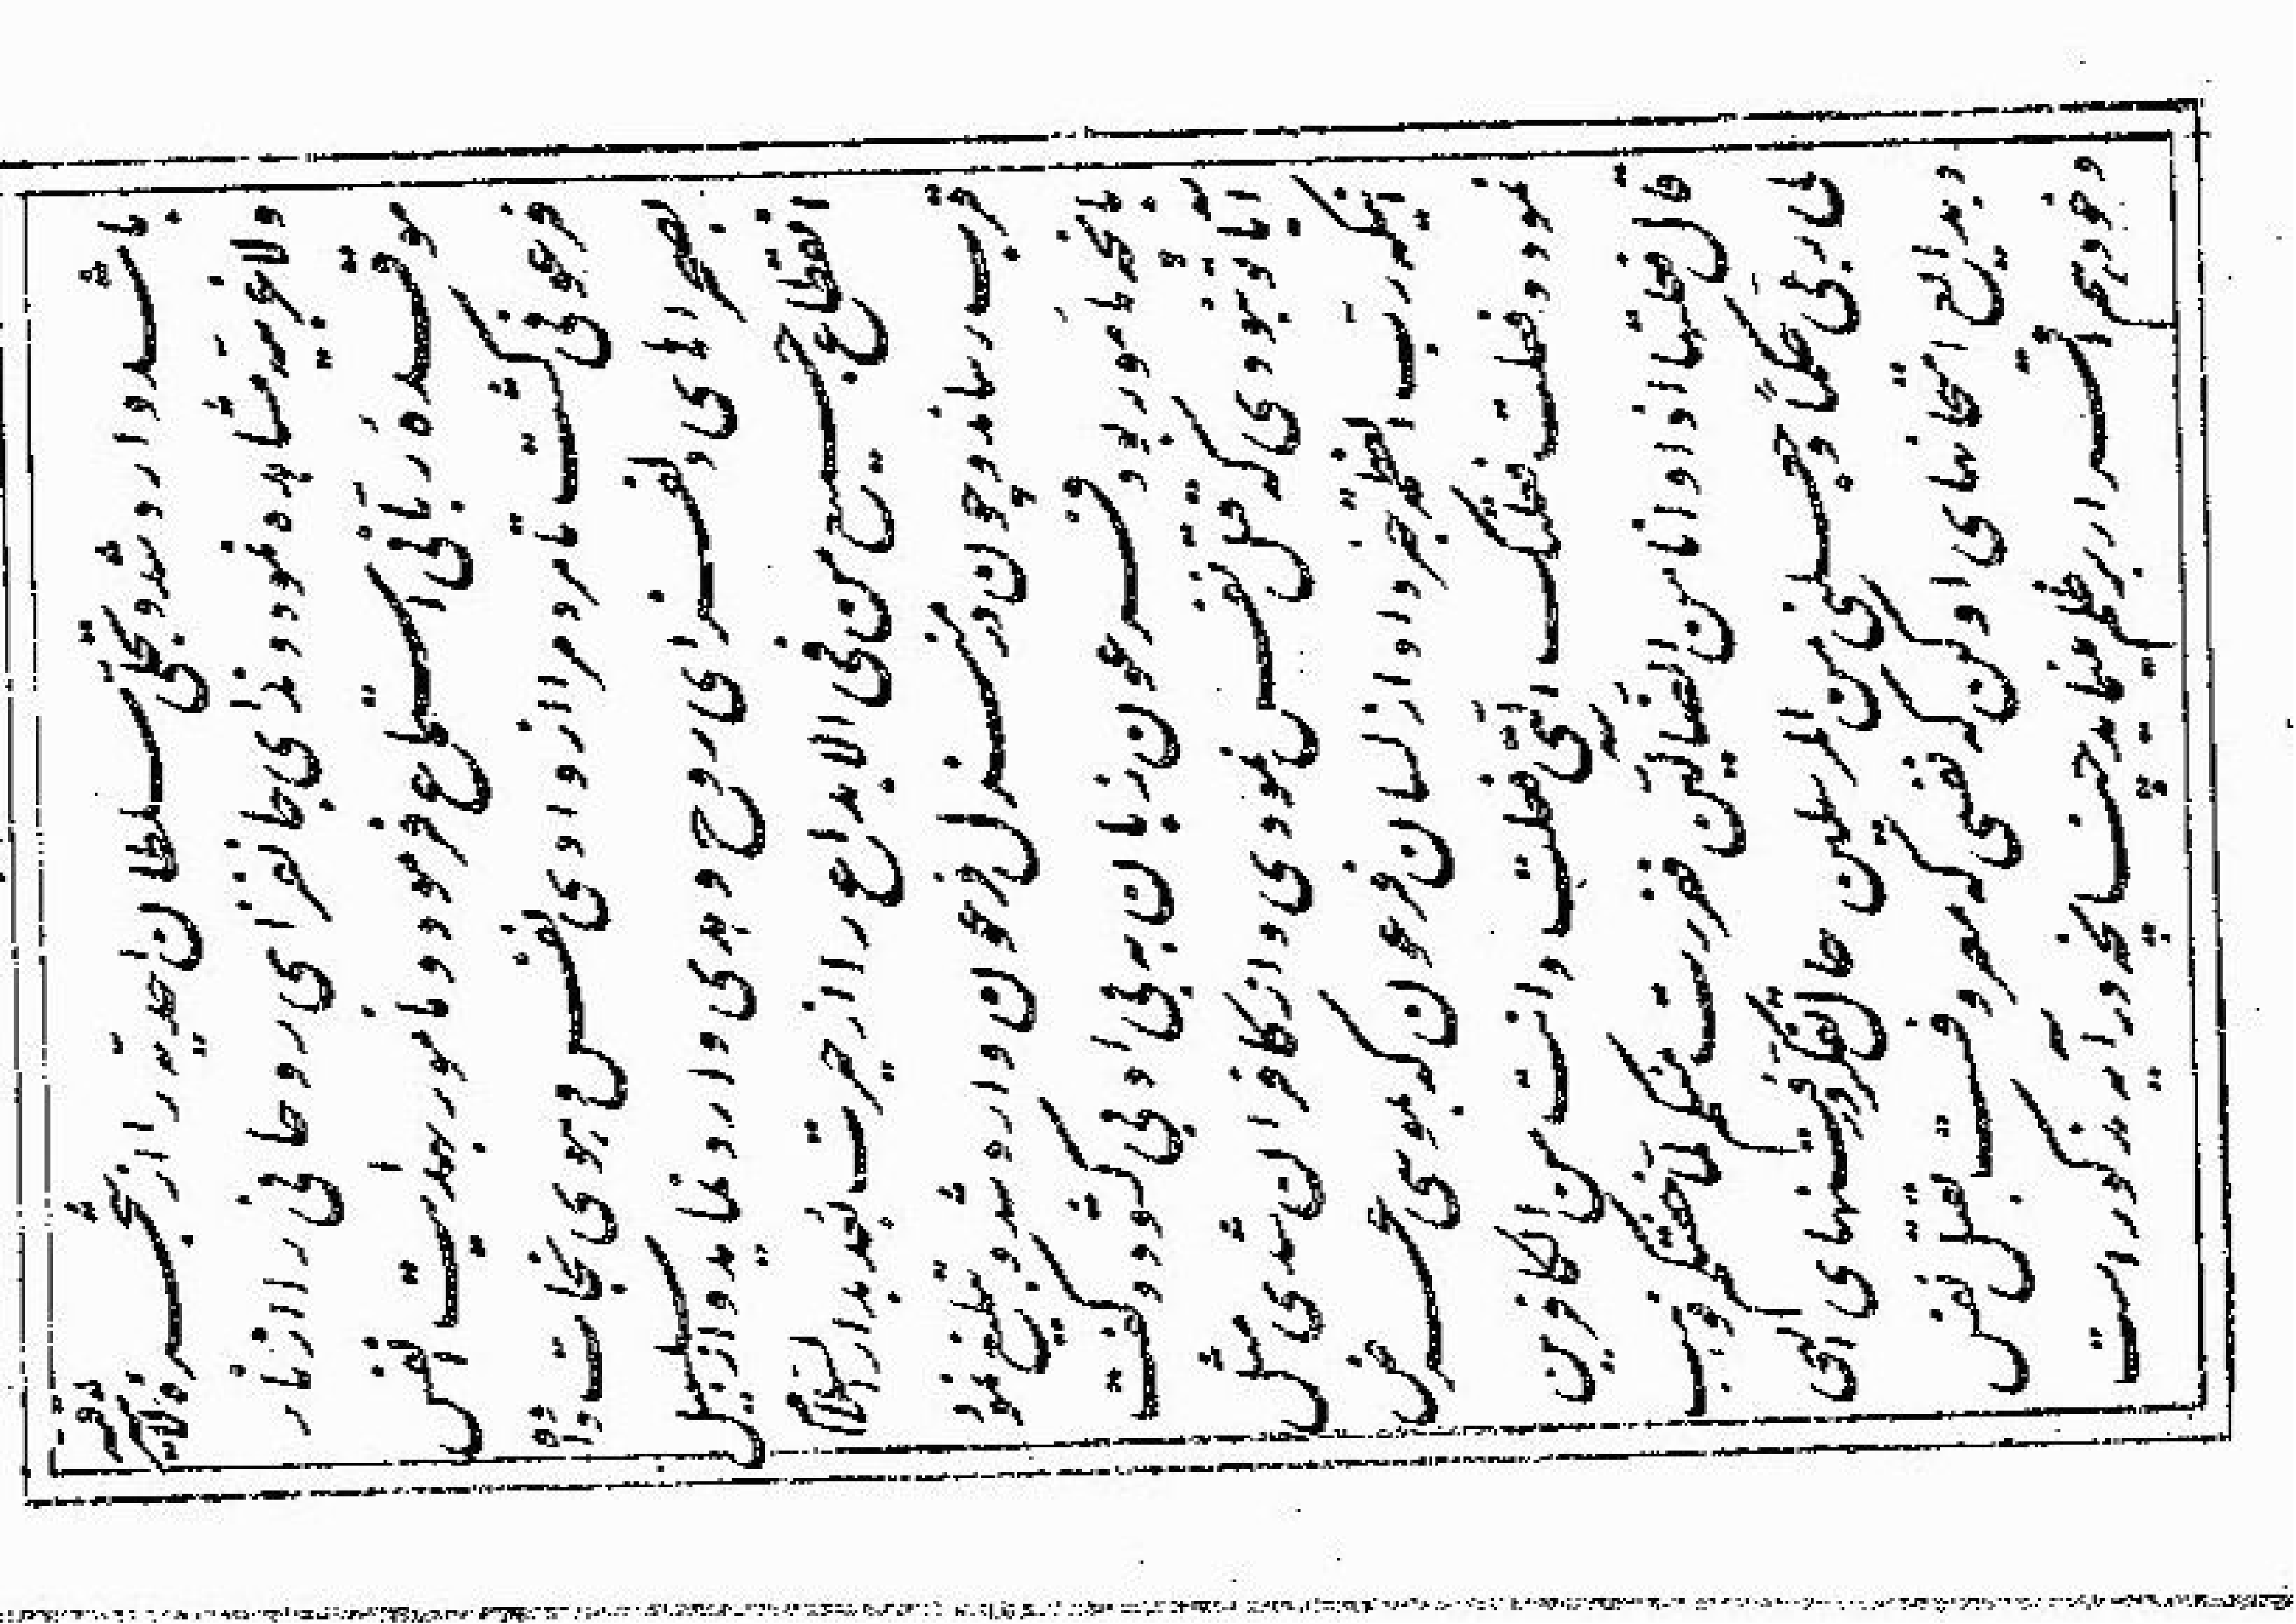 باشد وارد شد و تجلی سلطان احدیه را از شجره لا شرقیه
ولا غربیه مشاهده نمود و ندای جانفزای روحانی را از نار
موقده ربانی استماع فرمود و مامور بهدایت انفس
فرعونی گشت تا مردم را از وادی نفس و هوی نجات داده
بصحراهای دلفزای روح و هدی وارد نماید و از سلسبیل
انقطاع جمیع من فی الابداع را از حیرت بعد بدار السلام
قرب رساند و چون در منزل فرعون وارد شد و تبلیغ نمود
بآنچه مامور بود فرعون زبان به بی ادبی گشود و گفت
آیا تو نبودی که قتل نفس نمودی و از کافران شدی مثل
اینکه رب العظمة خبر داد از لسان فرعون که بموسی عرض
نمود و فعلت فعلتک التی فعلت وانت من الکافرین
قال فعلتها اذا وانا من الضالین ففررت منکم لمّا خفتکم فوهب
لی ربی حکماً و جعلنی من المرسلین حال تفکر در فتنهای الهی
و بدایع امتحانهای او کن که نفسی که معروفست بقتل نفس
و خود هم اقرار بر ظلم مینماید چنانچه در آیه مذکور است